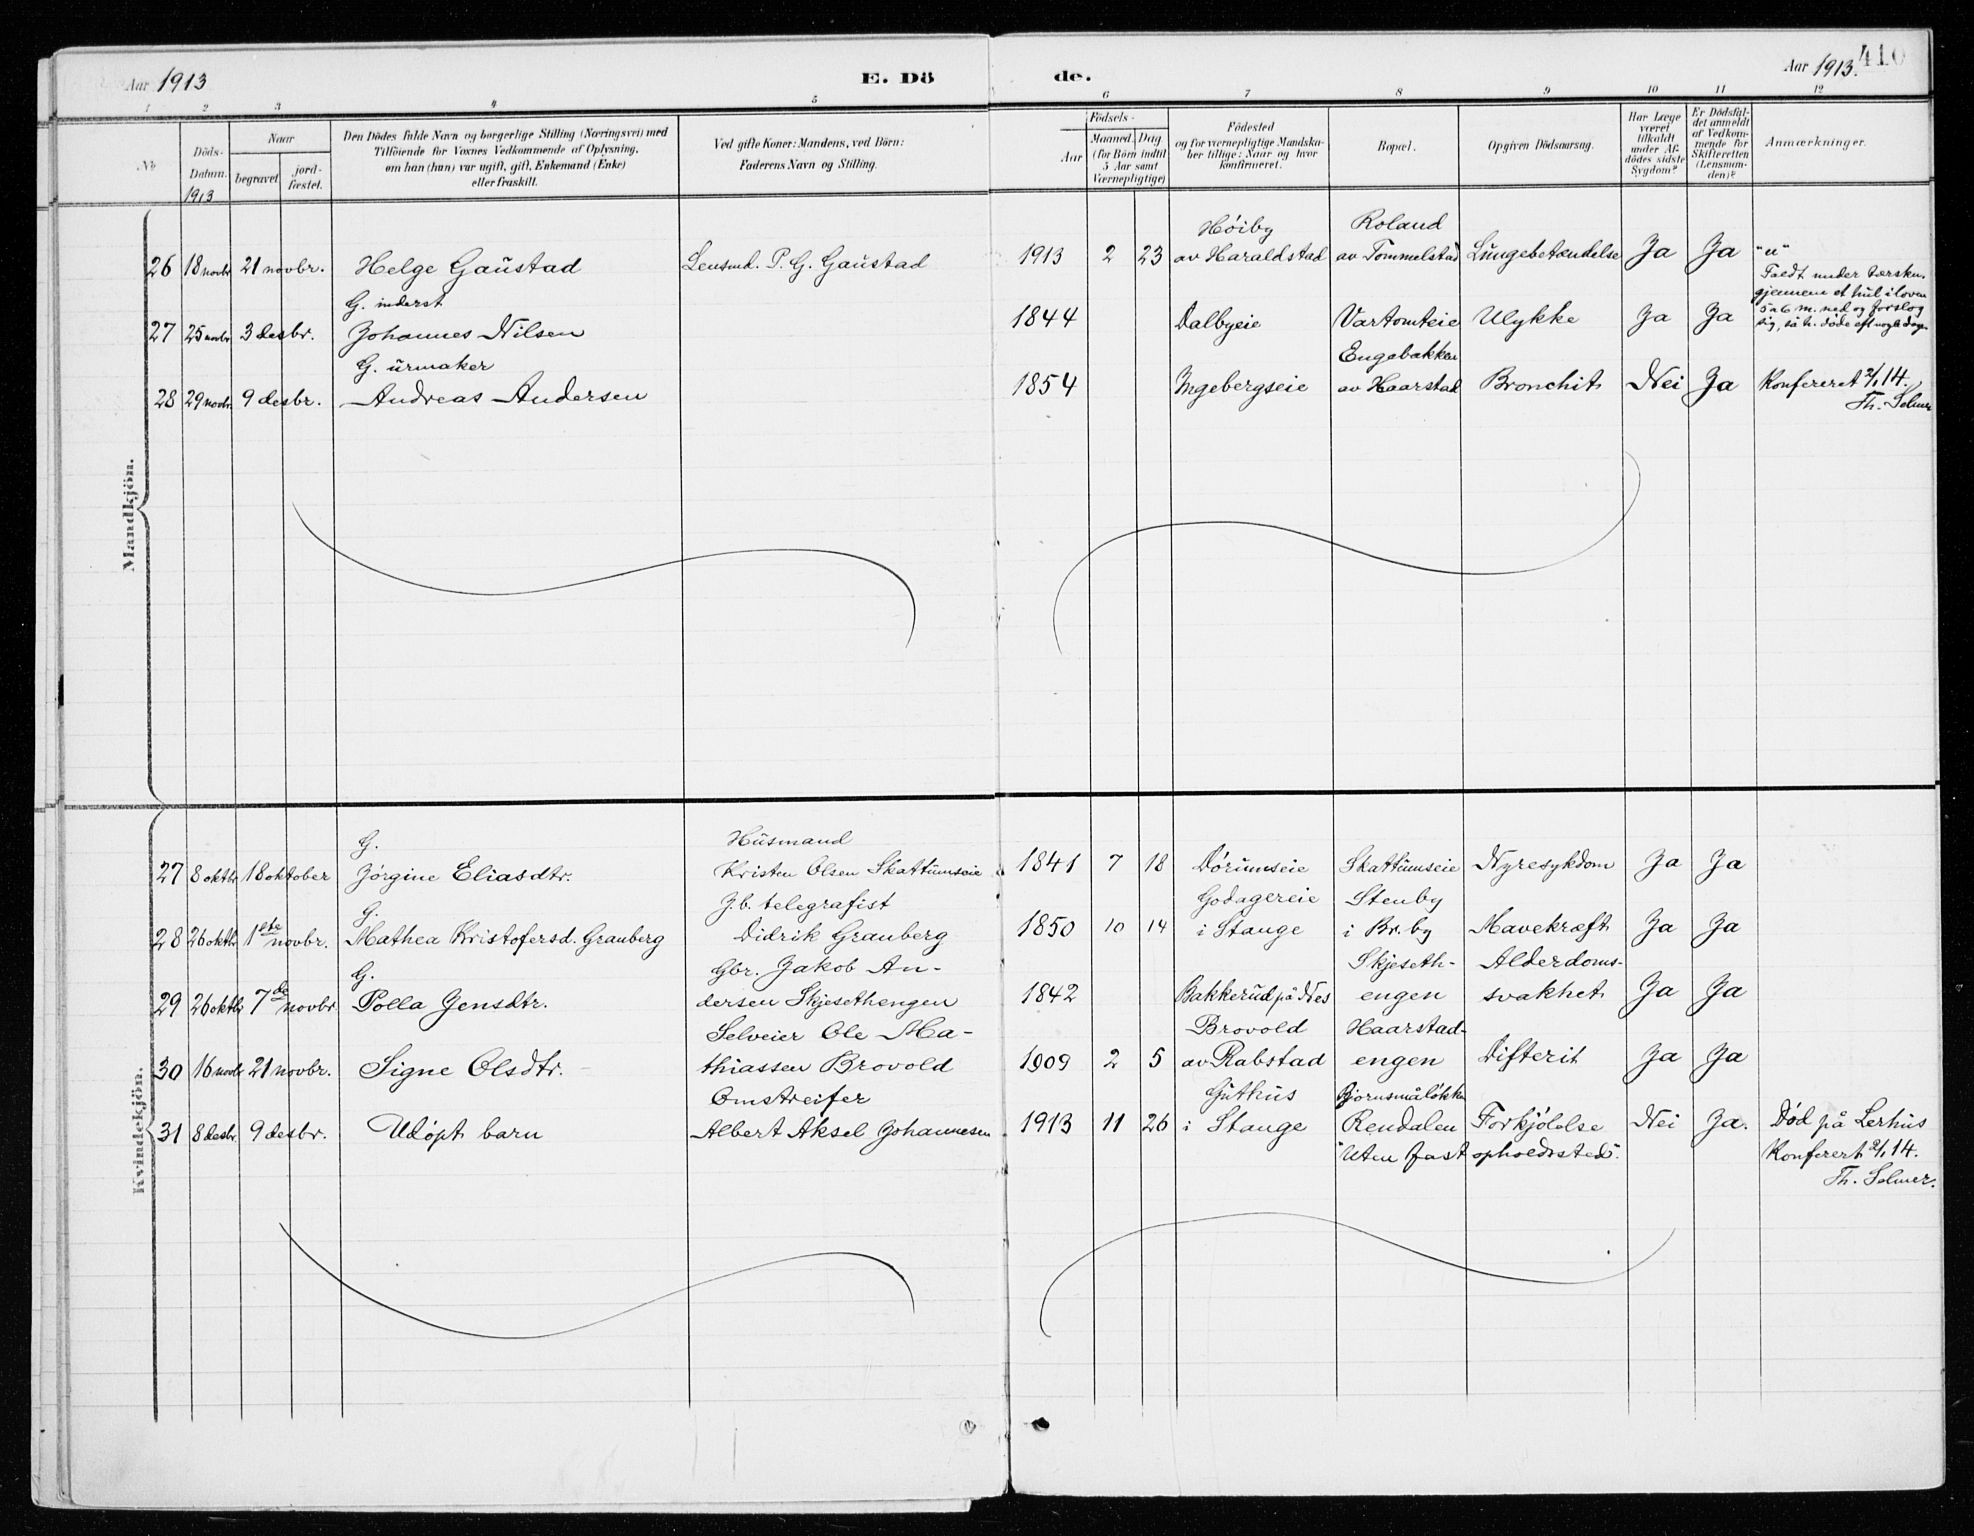 Aar 1913 E. Dö de. Aar 1913. 410
1 2 3 4 5 6 7 8 9 10 11 12
No
Döds-
Datum.
1913
Naar
begravet
jord-
fæstet.
Den Dödes fulde Navn og borgerlige Stilling (Næringsvei) med
Tilföiende for Voxnes Vedkommende af Oplysning,
om han (hun) var ugift, gift, Enkemand (Enke)
eller fraskilt.
Ved gifte Koner: Mandens, ved Börn:
Faderens Navn og Stilling.
Födsels-
Aar
Maaned. Dag
(for Börn indtil
5 Aar samt
Værnepligtige)
Födested
og for værnepligtige Mandska-
ber tillige: Naar og hvor
konfirmeret.
Bopæl.
Opgiven Dödsaarsag.
Har Læge
været
tilkaldt
under Af-
dödes sidste
Sygdom?
Er Dödsfal-
det anmeldt
af Vedkom-
mende for
Skifteretten
(Lensman-
den)?
Anmærkninger.
Mandkjön.
Høiby Roland
26 18 novbr. 21 novbr. Helge Gaustad Lensmd. P. G. Gaustad 1913 2 23 av Haraldstad av Tommelstad Lungebetændelse Ja Ja "u"
G. inderst
27 25 novbr. 3 desbr. Johannes Nilsen 1844 Dalbyeie Vartomteie Ulykke Ja Ja
Faldt under tærskn.
gjennem et hul i loven
5 a 6 m. ned og forslog
sig, så h. døde eft nogle dage.
G. urmaker Engebakken
28 29 novbr. 9 desbr. Andreas Andersen 1854 Ingebergseie av Haarstad Bronchit Nei Ja Konfereret 2/1 14.
Th. Selmer
Kvindekjön.
G. Husmand
27 8 oktbr. 18 oktober Jørgine Eliasdtr. Kristen Olsen Skattumseie 1841 7 18 Dørumseie Skattumseie Nyresykdom Ja Ja
G. J.b. telegrafist Godagereie Stenby
28 26 oktbr. 1ste novbr. Mathea Kristofersd. Granberg Didrik Granberg 1850 10 14 i Stange i Br.by Mavekræft Ja Ja
G. Gbr. Jakob An- Skjeseth- Alderdoms-
29 26 oktbr. 7de novbr. Polla Jensdtr. dersen Skjesethengen 1842 Bakkerud på Nes engen svakhet Ja Ja
Selveier Ole Ma- Brovold Haarstad-
30 16 novbr. 21 novbr. Signe Olsdtr. thiassen Brovold 1909 2 5 av Rabstad engen Difterit Ja Ja
Omstreifer Guthus Bjørnsmåløkken
31 8 desbr. 9 desbr. Udøpt barn Albert Aksel Johannesen 1913 11 26 i Stange Rendalen Forkjølelse Nei Ja. Død på Lerhus
"Uten fast opholdssted". Konferert 2/1 14.
Th. Selmer.